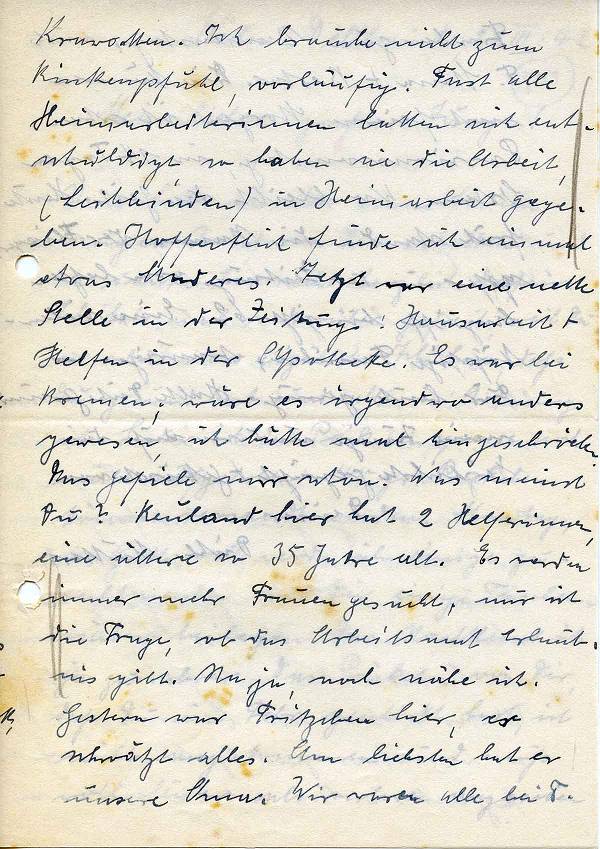 Krawatten. Ich brauche nicht zum
Rinkenpfuhl, vorläufig. Fast alle
Heimarbeiterinnen hatten sich ent-
schuldigt, so haben sie die Arbeit,
(Leibbinden) in Heimarbeit gege-
ben. Hoffentlich finde ich einmal
etwas Anderes. Jetzt war eine nette
Stelle in der Zeitung: Hausarbeit +
Helfen in der Apotheke. Es war bei
Bremen, wäre es irgendwo anders
gewesen, ich hätte mal hingeschrieb.
Das gefiele mir schon. Was meinst
Du? Keuland hier hat 2 Helferinnen,
eine ältere so 35 Jahre alt. Es werden
immer mehr Frauen gesucht, nur ist
die Frage, ob das Arbeitsamt Erlaub-
nis gibt. Na ja, noch nähe ich.
Gestern war Fritzchen hier, er
schwätzt alles. Am liebsten hat er
unsere Oma. Wir waren alle bei T.